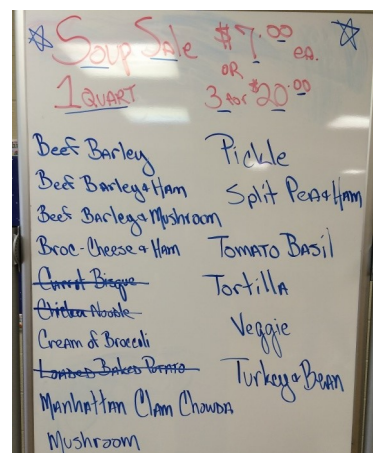 Soup Sale $7.00 ea.
OR
1 QUART 3 for $20.00
Beef Barley
Beef Barley & Ham
Beef Barley & Mushroom
Broc-Cheese & Ham
Carrot Bisque
Chicken Noodle
Cream of Broccoli
LOADED BAKED POTATO
Manhattan Clam Chowda
Mushroom
Pickle
Split Pea & Ham
Tomato Basil
Tortilla
Veggie
Turkey & Bean